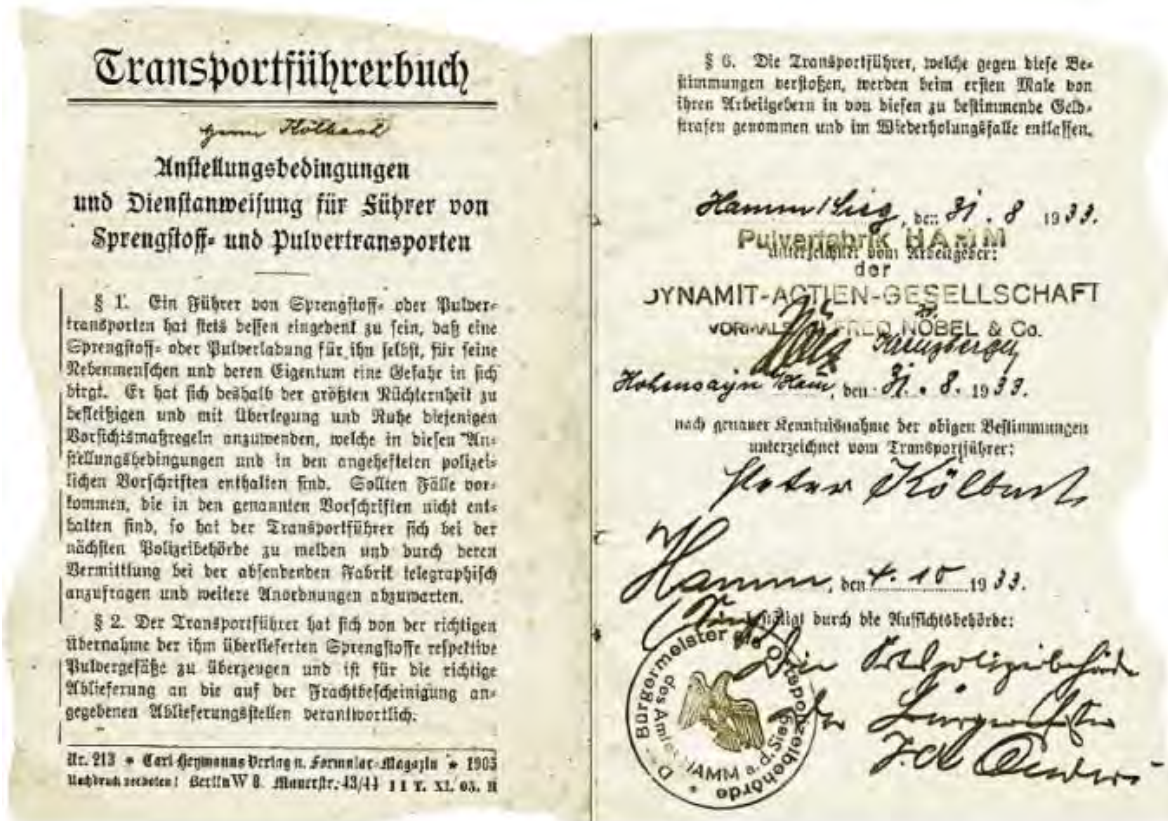 Transportführerbuch
Herrn Kölbach
Anstellungsbedingungen
und Dienstanweisung für Führer von
Sprengstoff- und Pulvertransporten
§ 1. Ein Führer von Sprengstoff- oder Pulver-
transporten hat stets dessen eingedenk zu sein, daß eine
Sprengstoff- oder Pulverladung für ihn selbst, für seine
Nebenmenschen und deren Eigentum eine Gefahr in sich
birgt. Er hat sich deshalb der größten Nüchternheit zu
befleißigen und mit Überlegung und Ruhe diejenigen
Vorsichtsmaßregeln anzuwenden, welche in diesen An-
stellungsbedingungen und in den angehefteten polizei-
lichen Vorschriften enthalten sind. Sollten Fälle vor-
kommen, die in den genannten Vorschriften nicht ent-
halten sind, so hat der Transportführer sich bei der
nächsten Polizeibehörde zu melden und durch deren
Vermittlung bei der absendenden Fabrik telegraphisch
anzufragen und weitere Anordnungen abzuwarten.
§ 2. Der Transportführer hat sich von der richtigen
Übernahme der ihm überlieferten Sprengstoffe respektive
Pulvergefäße zu überzeugen und ist für die richtige
Ablieferung an die auf der Frachtbescheinigung an-
gegebenen Ablieferungsstellen verantwortlich.
Nr. 213 * Carl Heymanns Verlag u. Formular-Magazin * 1905
Nachdruck verboten! Berlin W 8. Mauerstr. 43/44 11 T. XI. 05. H
§ 6. Die Transportführer, welche gegen diese Be-
stimmungen verstoßen, werden beim ersten Male von
ihren Arbeitgebern in von diesen zu bestimmende Geld-
strafen genommen und im Wiederholungsfalle entlassen.
Hamm/Sieg, den 31. 8 1933.
Pulverfabrik HAMM
unterzeichnet vom Arbeitgeber:
der
DYNAMIT-ACTIEN-GESELLSCHAFT
VORMALS ALFRED NOBEL & Co.
Hohensayn Hamm, den 31. 8. 1933.
nach genauer Kenntnisnahme der obigen Bestimmungen
unterzeichnet vom Transportführer:
Peter Kölbach
Hamm, den 4. 10 1933.
(Sieg)
bestätigt durch die Aufsichtsbehörde:
Die Ortspolizeibehörde
Der Bürgermeister
J.A.
Der Bürgermeister als Ortspolizeibehörde
des Amtes HAMM a. d. Sieg